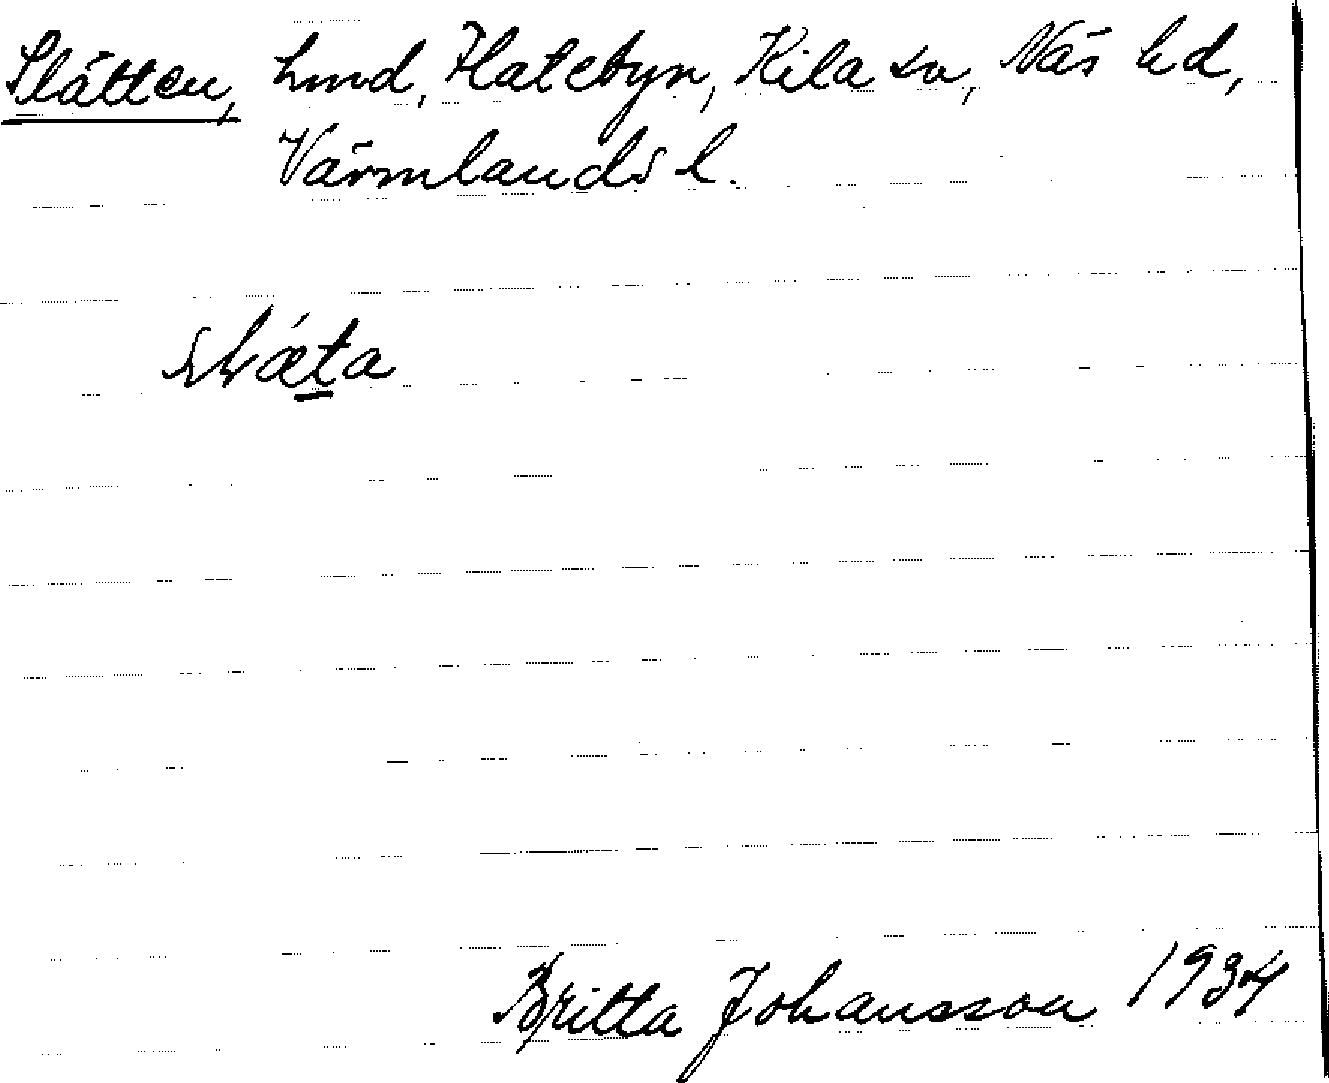 Slätten, Lund, Flatebyn, Kila sn, Näs hd,
Värmlands l.
Britta Johansson 1934